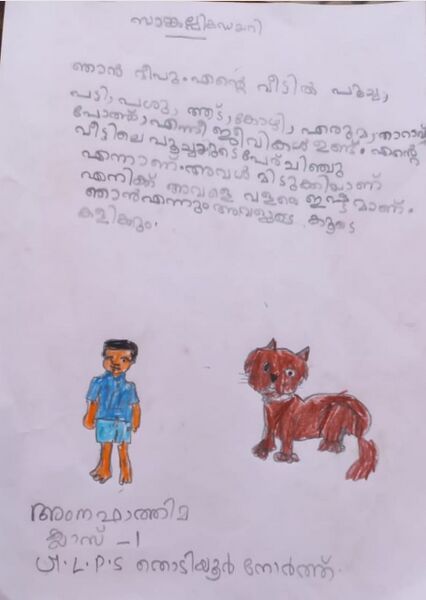 സാങ്കല്പികഡയറി
ഞാൻ ദീപു.എന്റെ വീട്ടിൽ പൂച്ച,
പട്ടി,പശു, ആട്,കോഴി, എരുമ,താറാവ്
പോത്ത്,എന്നീ ജീവികൾ ഉണ്ട്. എന്റെ
വീട്ടിലെ പൂച്ചയുടെപേര് ചിഞ്ചു
എന്നാണ്.അവൾ മിടുക്കിയാണ്
എനിക്ക് അവളെ വളരെ ഇഷ്ടമാണ്.
ഞാൻഎന്നും അവളുടെ കൂടെ
കളിക്കും.
അംനഫാത്തിമ
ക്ലാസ് -1
ജി.L.P.S തൊടിയൂർ നോർത്ത്.